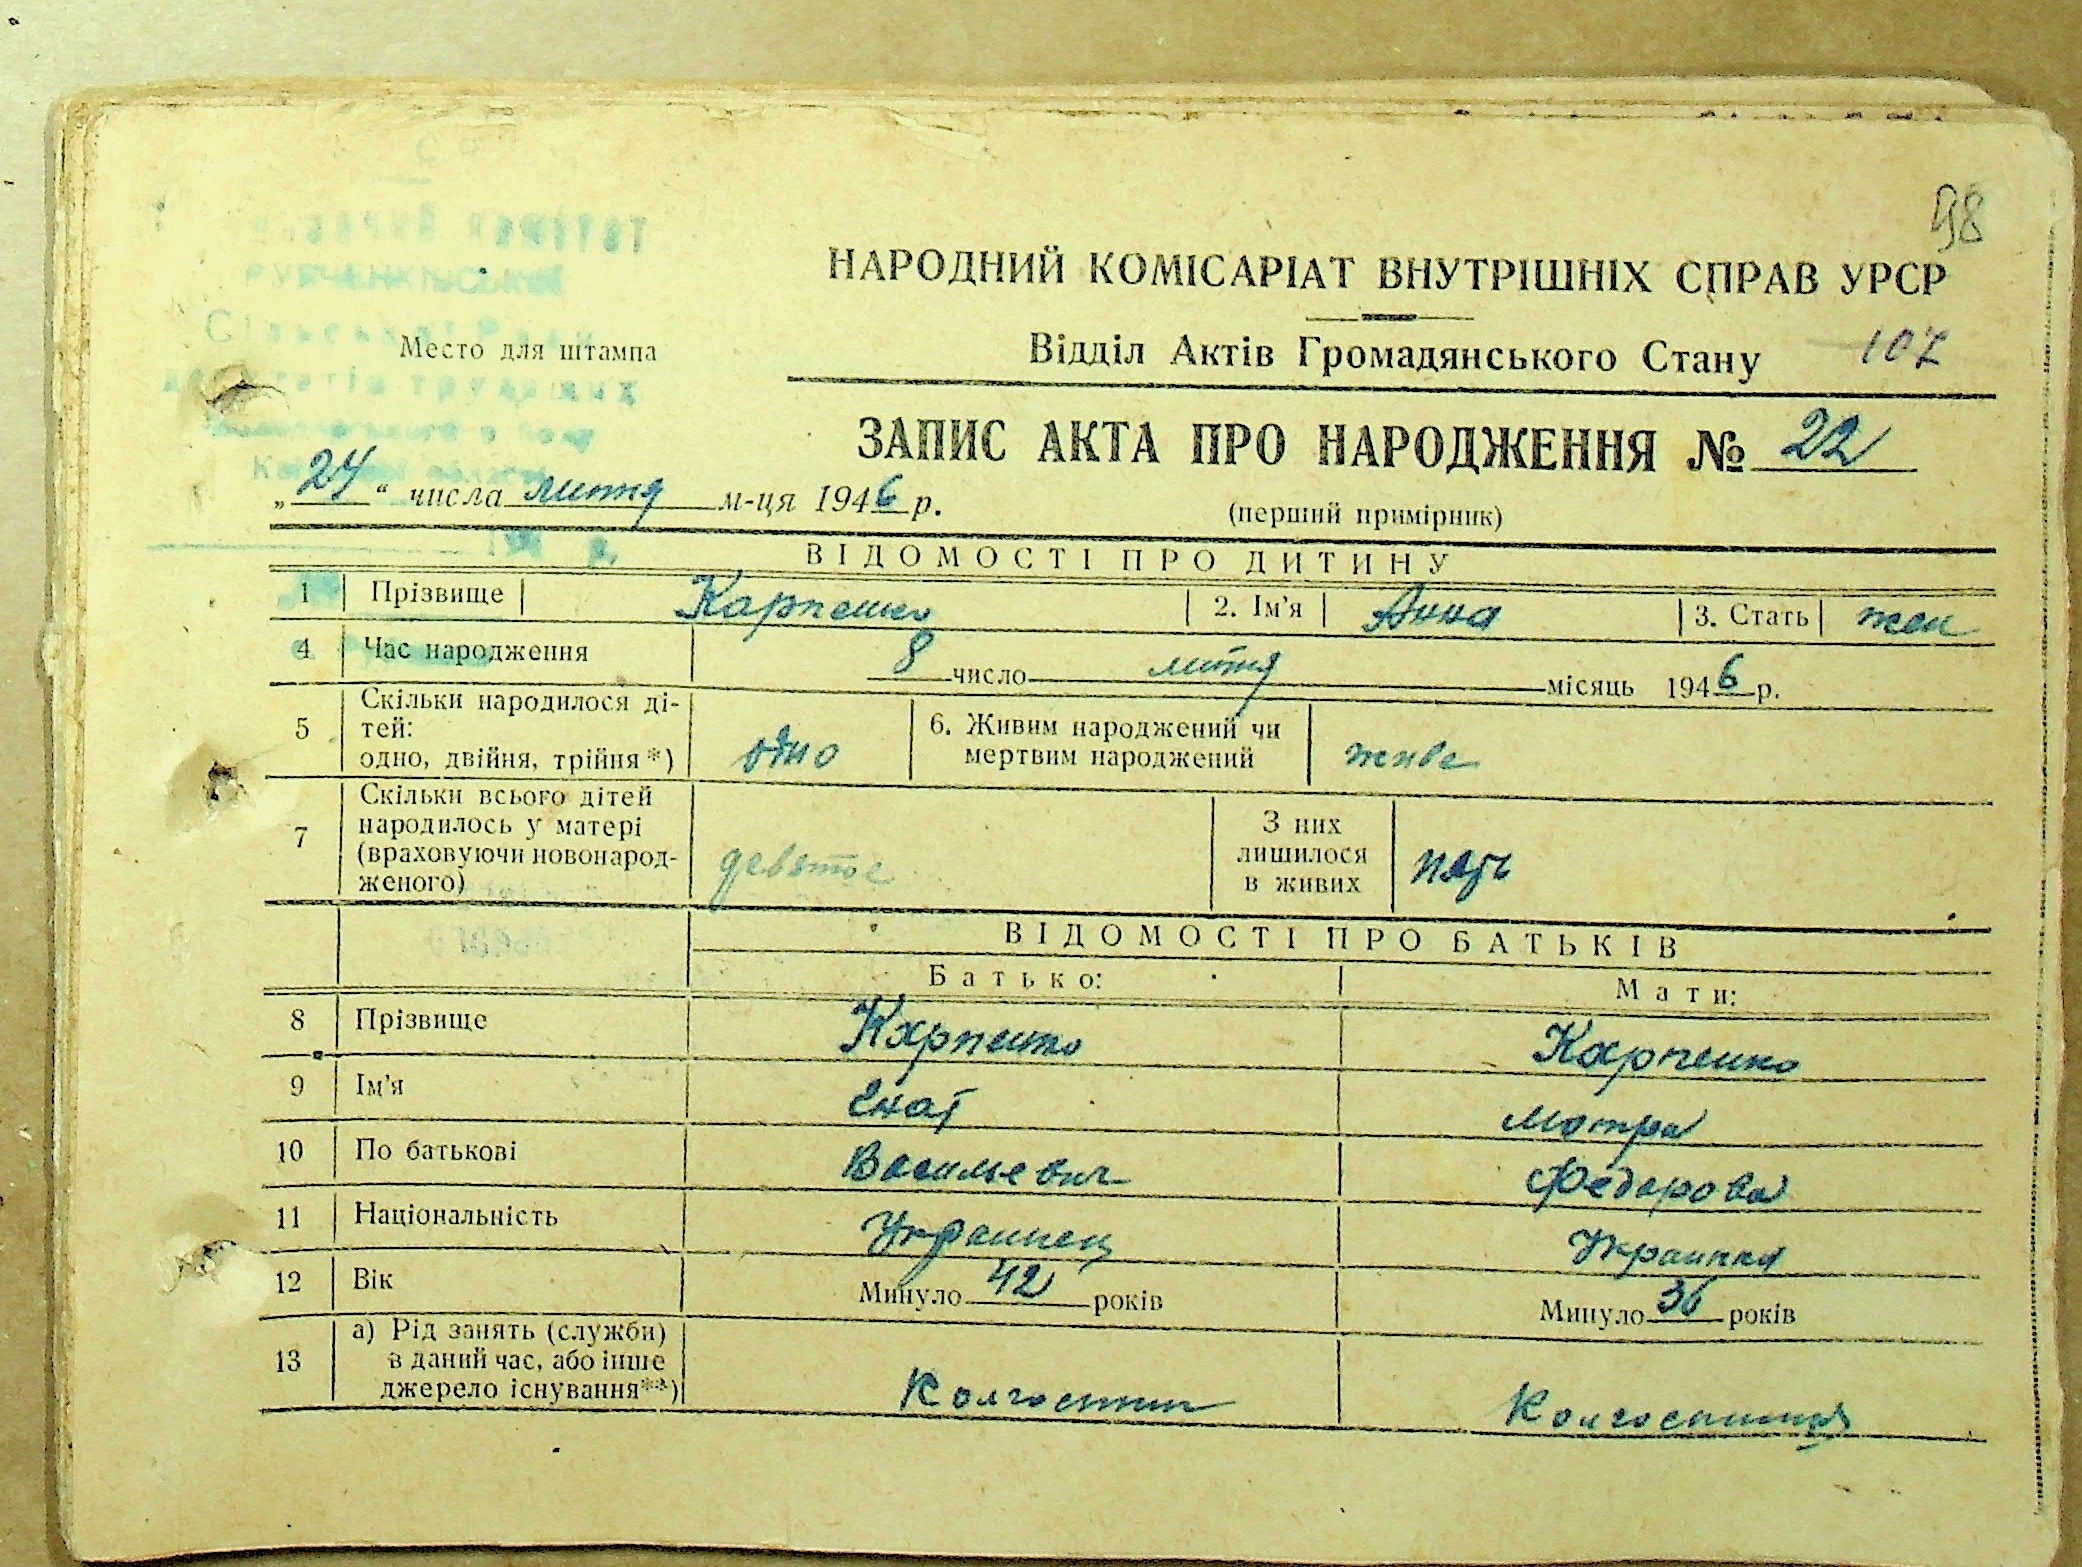 98
НАРОДНИЙ КОМІСАРІАТ ВНУТРІШНІХ СПРАВ УРСР
Сільської Ради
Место для штампа
Відділ Актів Громадянського Стану 107
депутатів трудящих
ЗАПИС АКТА ПРО НАРОДЖЕННЯ № 22
„24“ числа лютня м-ця 1946 р.
(перший примірник)
ВІДОМОСТІ ПРО ДИТИНУ
1 Прізвище Карпенко 2. Ім'я Анна 3. Стать жен
4 Час народження 8 число лютня місяць 1946 р.
5 Скільки народилося ді-
тей:
одно, двійня, трійня*) одно 6. Живим народжений чи
мертвим народжений живе
7 Скільки всього дітей
народилось у матері
(враховуючи новонарод-
женого) девятое З них
лишилося
в живих пять
ВІДОМОСТІ ПРО БАТЬКІВ
Батько: Мати:
8 Прізвище Карпенко Карпенко
9 Ім'я Мотря
10 По батькові Васильевич Федорова
11 Національність Украинец Украинка
12 Вік Минуло 42 років Минуло 36 років
13 а) Рід занять (служби)
в даний час, або інше
джерело існування**) Колгоспник Колгоспниця